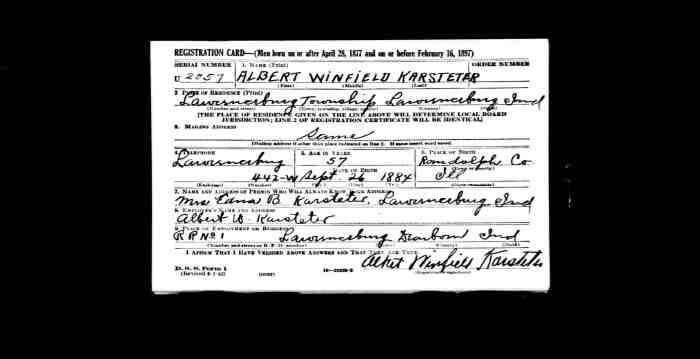 REGISTRATION CARD—(Men born on or after April 28, 1877 and on or before February 16, 1897)
SERIAL NUMBER 1. NAME (Print) ORDER NUMBER
U 2057 ALBERT WINFIELD KARSTETER
(First) (Middle) (Last)
2. PLACE OF RESIDENCE (Print)
Lawrenceburg Township Lawrenceburg Ind
[THE PLACE OF RESIDENCE GIVEN ON THE LINE ABOVE WILL DETERMINE LOCAL BOARD
JURISDICTION; LINE 2 OF REGISTRATION CERTIFICATE WILL BE IDENTICAL]
3. MAILING ADDRESS
Same
[Mailing address if other than place indicated on line 2. If same insert word same]
4. TELEPHONE 5. AGE IN YEARS 6. PLACE OF BIRTH
Lawrenceburg 57 Randolph Co.
DATE OF BIRTH
442-W Sept 26 1884 Ill
(Exchange) (Number) (Mo.) (Day) (Yr.)
7. NAME AND ADDRESS OF PERSON WHO WILL ALWAYS KNOW YOUR ADDRESS
Mrs Edna B. Karsteter, Lawrenceburg Ind
8. EMPLOYER'S NAME AND ADDRESS
Albert W. Karsteter
9. PLACE OF EMPLOYMENT OR BUSINESS
R R No 1 Lawrenceburg Dearborn Ind
(Number and street or R. F. D. number) (Town) (County) (State)
I AFFIRM THAT I HAVE VERIFIED ABOVE ANSWERS AND THAT THEY ARE TRUE.
Albert Winfield Karsteter
D. S. S. Form 1
(Revised 4-1-42) (over)